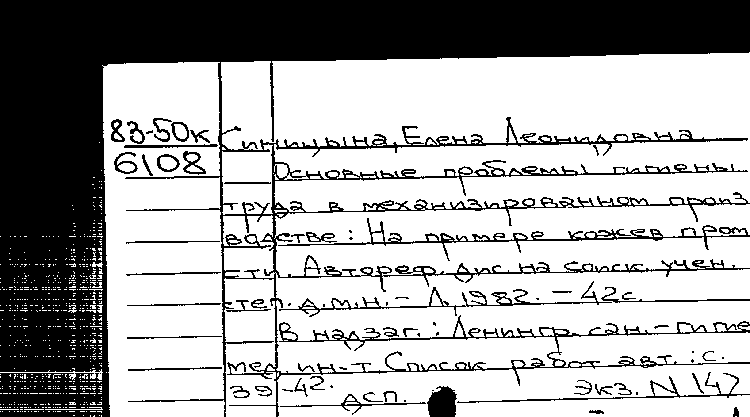 83-50к Синицына, Елена Леонидовна.
6108 Основные проблемы гигиены
труда в механизированном произ
водстве: На примере кожев пром
сти. Автореф. дис. на соиск. учен.
степ. д.м.н. - Л, 1982. - 42с.
В надзаг.: Ленингр. сан.-гигие
мед. ин-т. Список работ авт.: с.
39-42.
дсп. экз. N 147